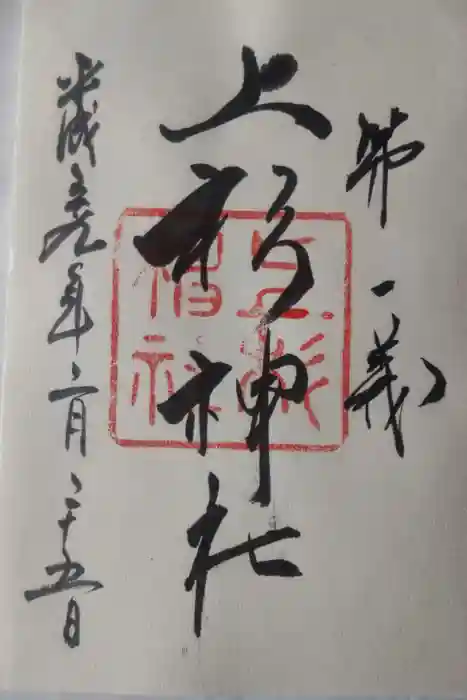 第一義
上杉神社
上杉
神社
平成年二月二十五日